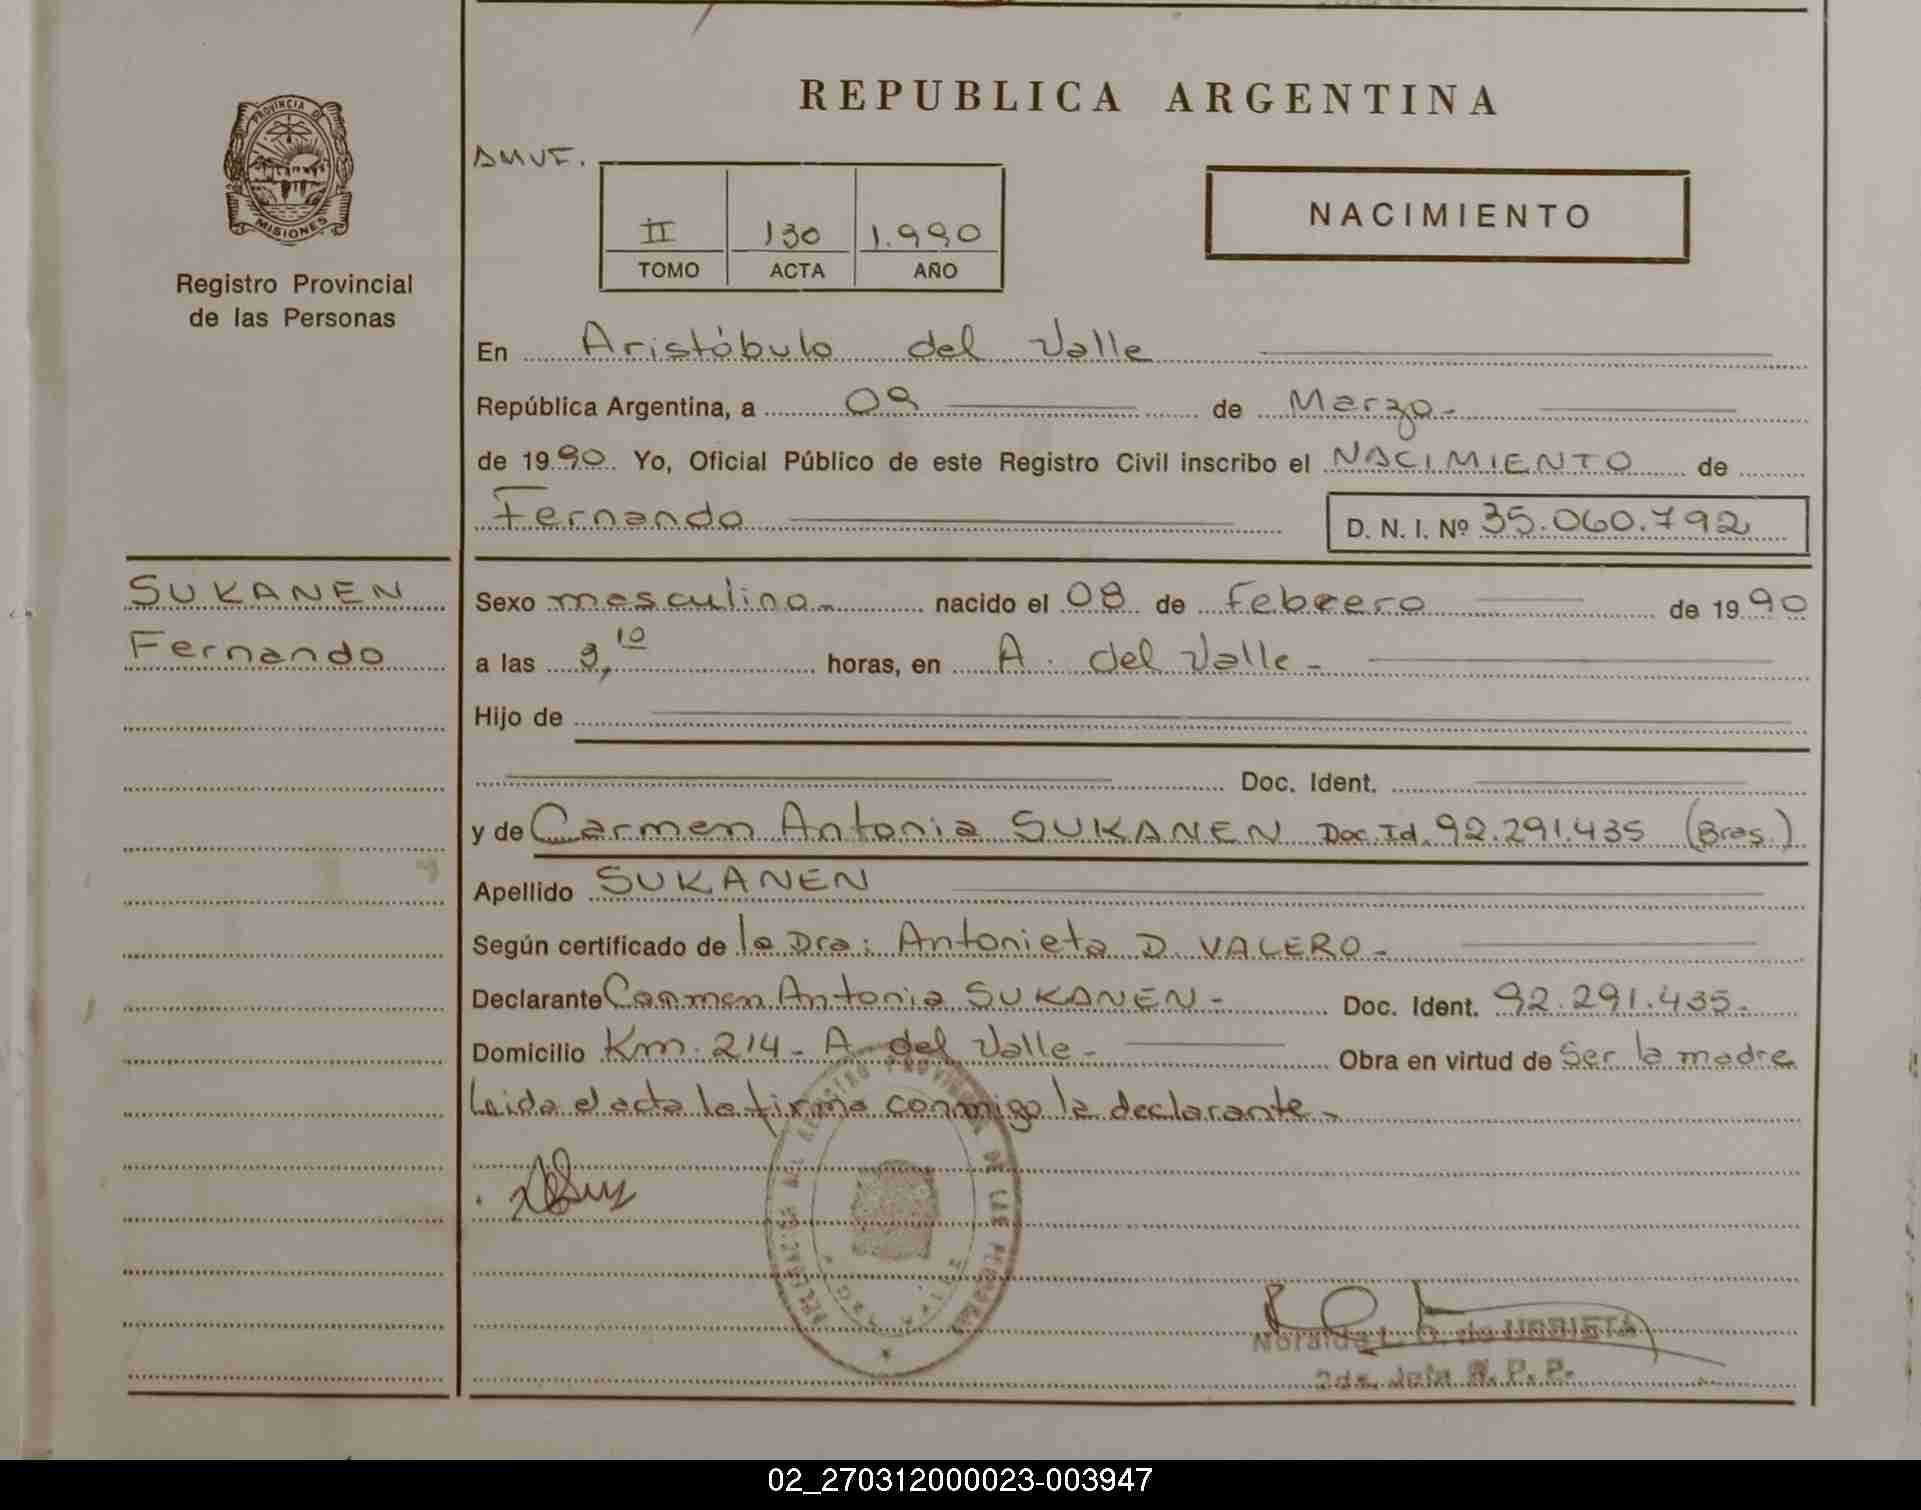 REPUBLICA ARGENTINA
PROVINCIA DE
MISIONES
Registro Provincial
de las Personas
II 130 1.990
TOMO ACTA AÑO
NACIMIENTO
En Aristóbulo del Valle
República Argentina, a 09 de Marzo.-
de 1990. Yo, Oficial Público de este Registro Civil inscribo el NACIMIENTO de
Fernando D. N. I. Nº 35.060.792
SUKANEN
Fernando
Sexo masculino.- nacido el 08 de Febrero de 1990
a las 9,10 horas, en A. del Valle-
Hijo de
Doc. Ident.
y de Carmen Antonia SUKANEN Doc. Id. 92.291.435 (Bras.)
Apellido SUKANEN
Según certificado de la Dra: Antonieta D. VALERO-
Declarante Carmen Antonia SUKANEN- Doc. Ident. 92.291.435.
Domicilio Km. 214- A del Valle- Obra en virtud de Ser la madre
Leida el acta la firma conmigo la declarante-
Noraida L. D. de URRIETA
R. P. P.
02_270312000023-003947